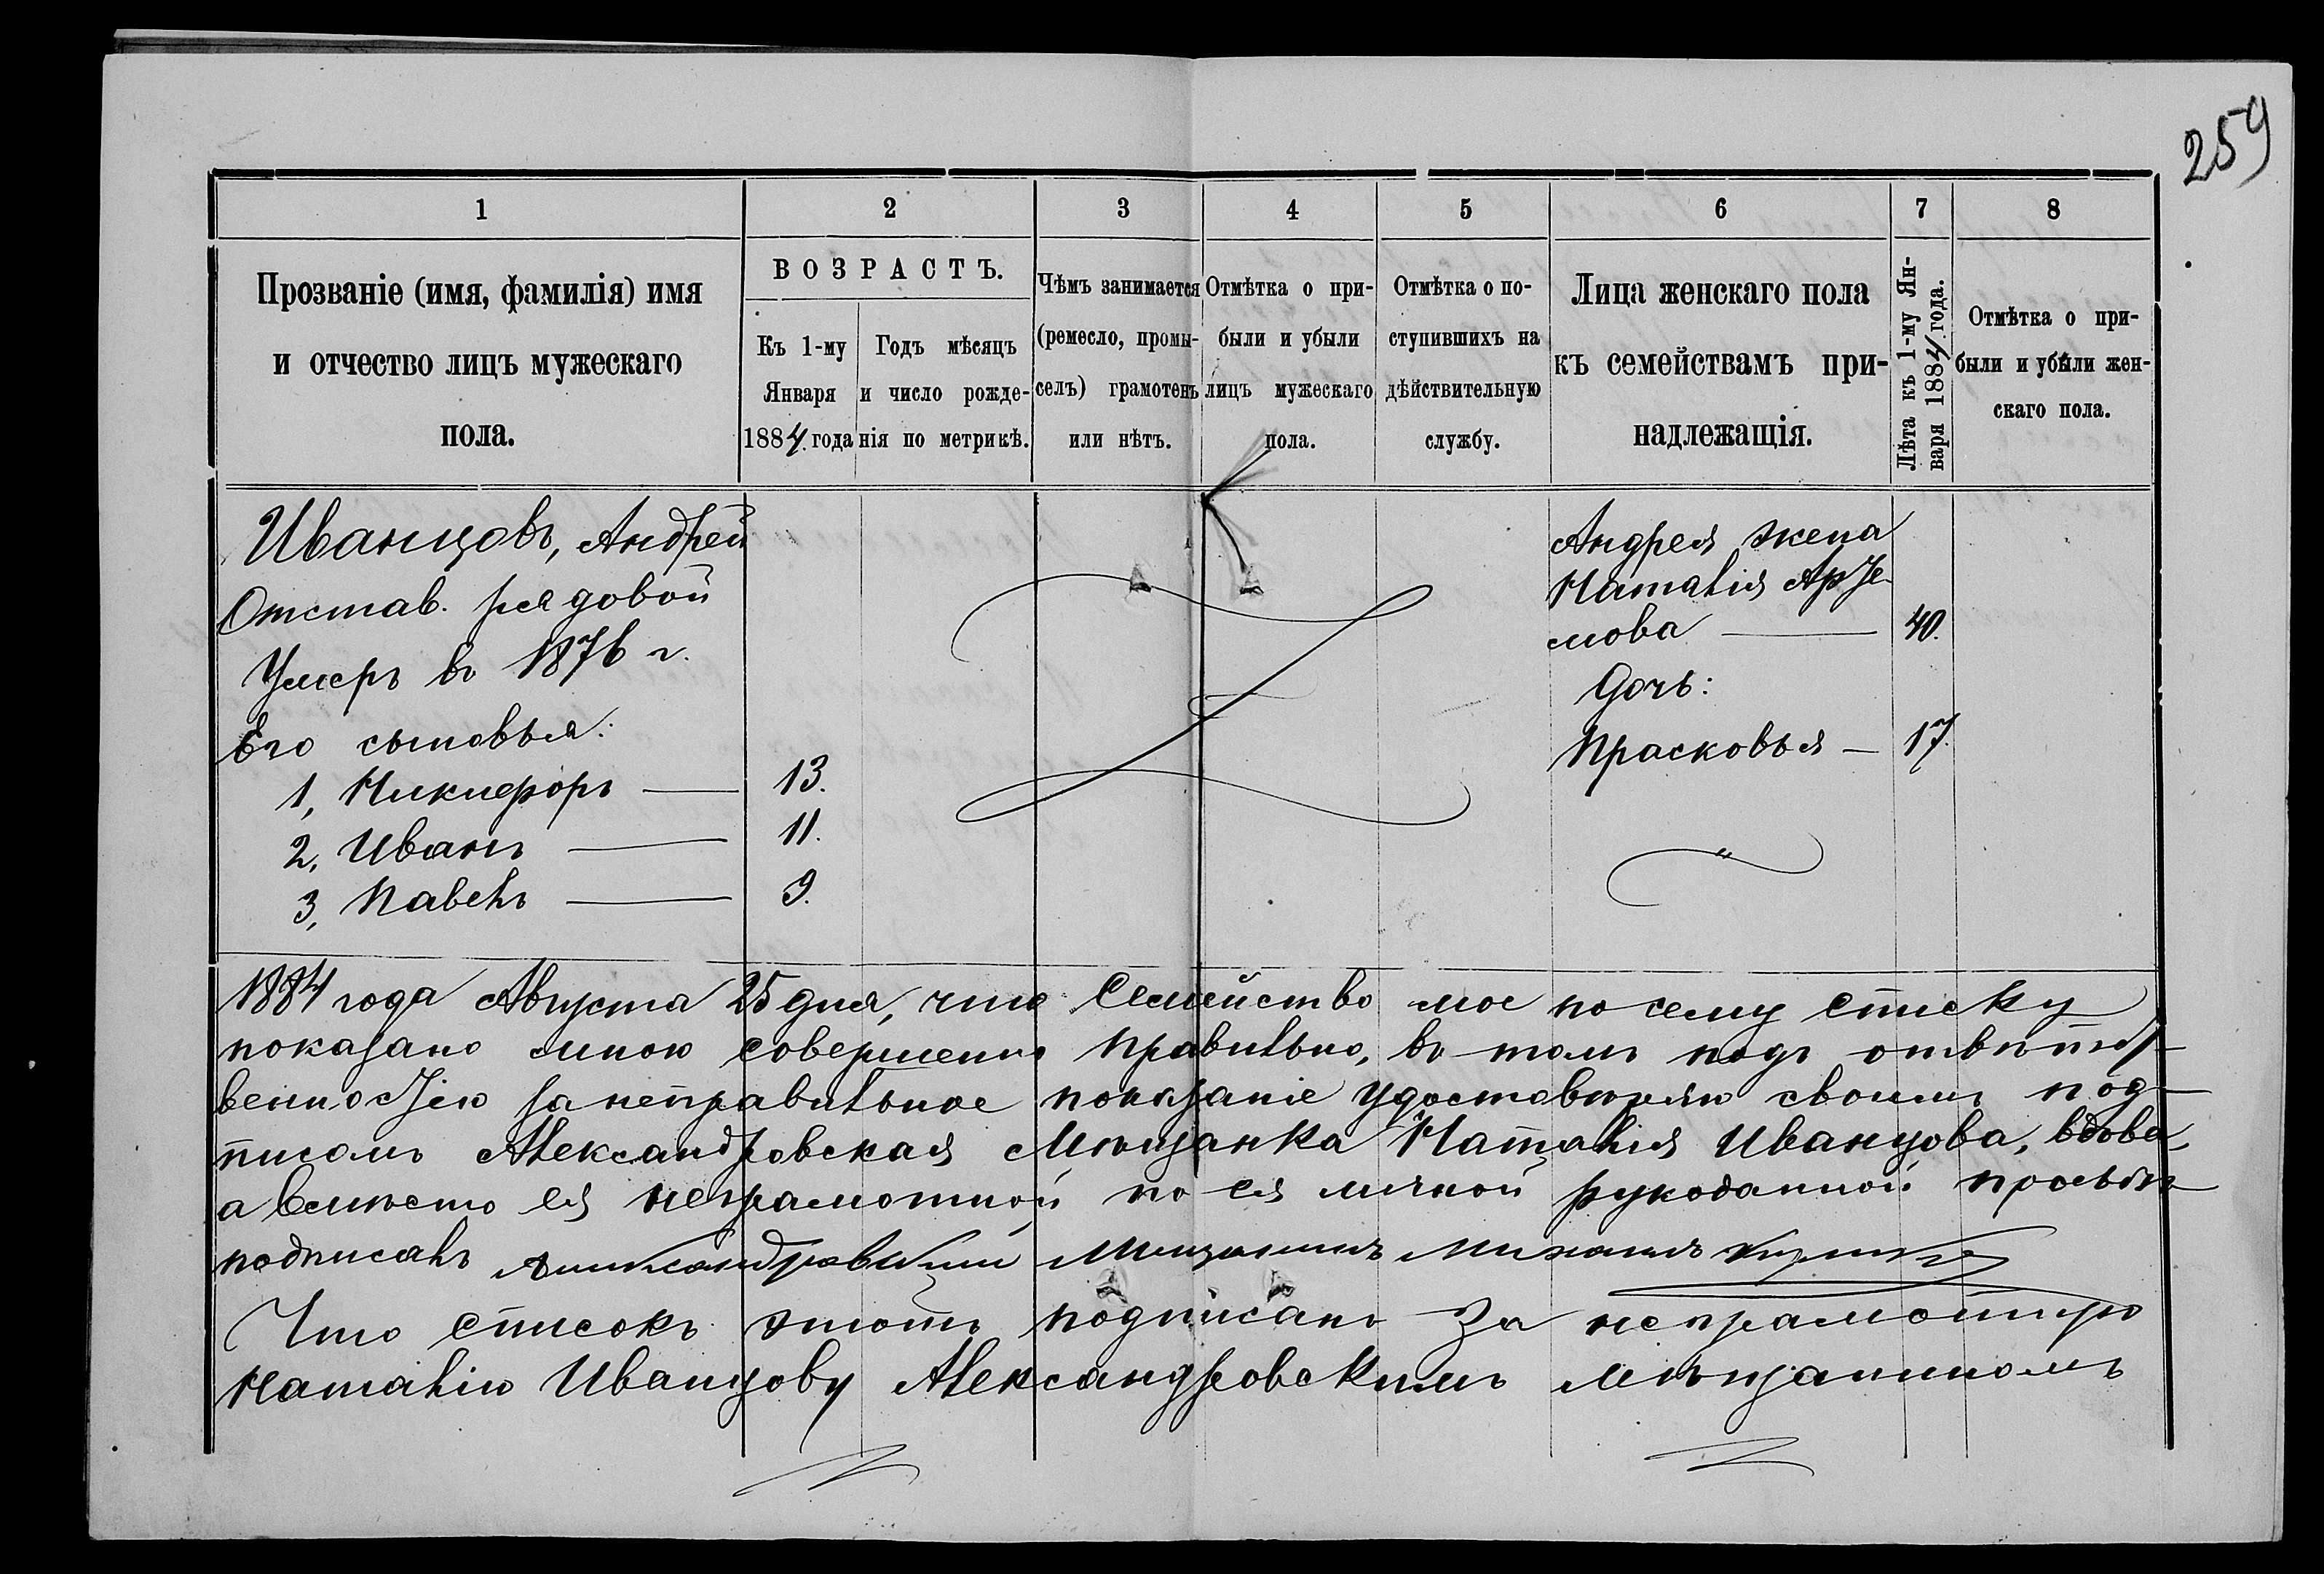 259
1 2 3 4 5 6 7 8
Прозваніе (имя, фамилія) имя
и отчество лицъ мужескаго
пола.
ВОЗРАСТЪ.
Къ 1-му
Января
1884 года
Годъ мѣсяцъ
и число рожде-
нія по метрикѣ.
Чѣмъ занимается
(ремесло, промы-
селъ) грамотенъ
или нѣтъ.
Отмѣтка о при-
были и убыли
лицъ мужескаго
пола.
Отмѣтка о по-
ступившихъ на
дѣйствительную
службу.
Лица женскаго пола
къ семействамъ при-
надлежащія.
Лѣта къ 1-му Ян-
варя 1884 года.
Отмѣтка о при-
были и убыли жен-
скаго пола.
Иванцовъ, Андрей
Отстав. рядовой
Умеръ въ 1876 г.
Его сыновья:
1, Никифоръ — 13.
2, Иванъ — 11.
3, Павелъ — 9.
Андрея жена
Наталія Арте-
мова — 40.
Дочь:
Прасковья — 17.
1884 года Августа 25 дня, что Семейство мое по сему списку
показано мною совершенно правильно, въ томъ подъ отвѣтст-
венностію за неправильное показаніе удостовѣряю своимъ под-
писомъ Александровская Мѣщанка Наталія Иванцова, вдова,
а вмѣсто ея неграмотной по ея личной рукоданной просьбѣ
подписалъ Мищанинъ Михаилъ
Что списокъ этотъ подписанъ за неграмотную
Наталію Иванцову Александровскимъ мѣщаниномъ